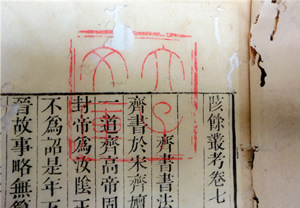 陔餘叢考卷七
齊書書法
齊書於宋齊嬗
一道齊高帝固
封帝為汝陰王
不為詔是年五
晉故事略無